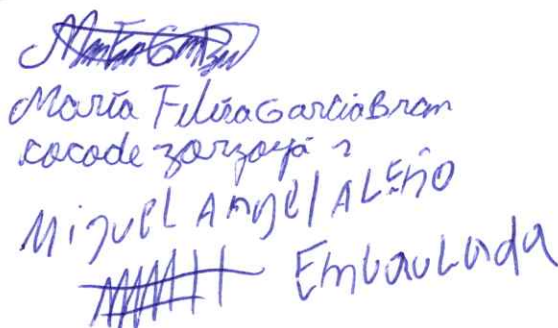 María Felisa García Bran
cocode zarzayá 2
Miguel Angel ALEÑO
Embaulada